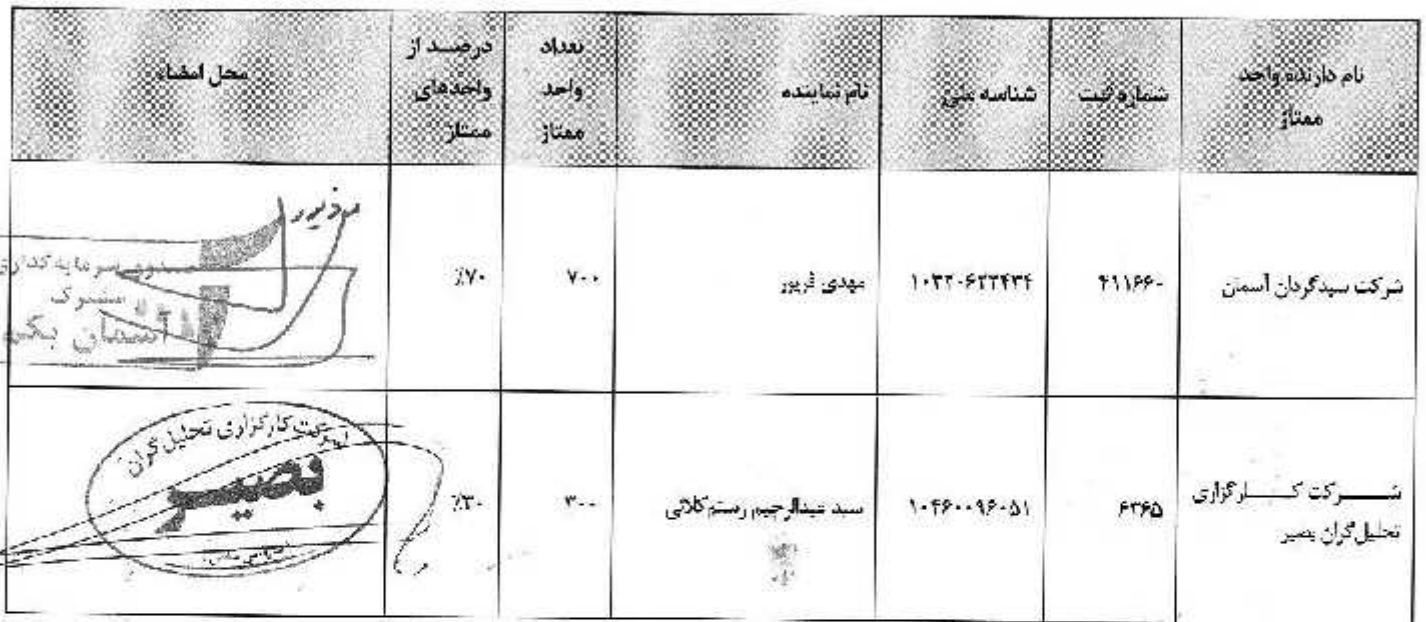 نام دارنده واحد ممتاز
شماره ثبت
شناسه ملی
نام نماینده
تعداد واحد ممتاز
درصد از واحدهای ممتاز
محل امضاء
شرکت سبدگردان آسمان
۴۱۱۶۶۰
۱۰۳۲۰۶۲۳۴۳۴
مهدی فریور
۷۰۰
٪۷۰
مشترک
شرکت کارگزاری
تحلیل‌گران بصیر
۶۳۶۵
۱۰۴۶۰۰۹۶۰۵۱
سید عبدالرحیم رستم‌کلائی
۳۰۰
٪۳۰
شرکت کارگزاری تحلیل گران
بصیر